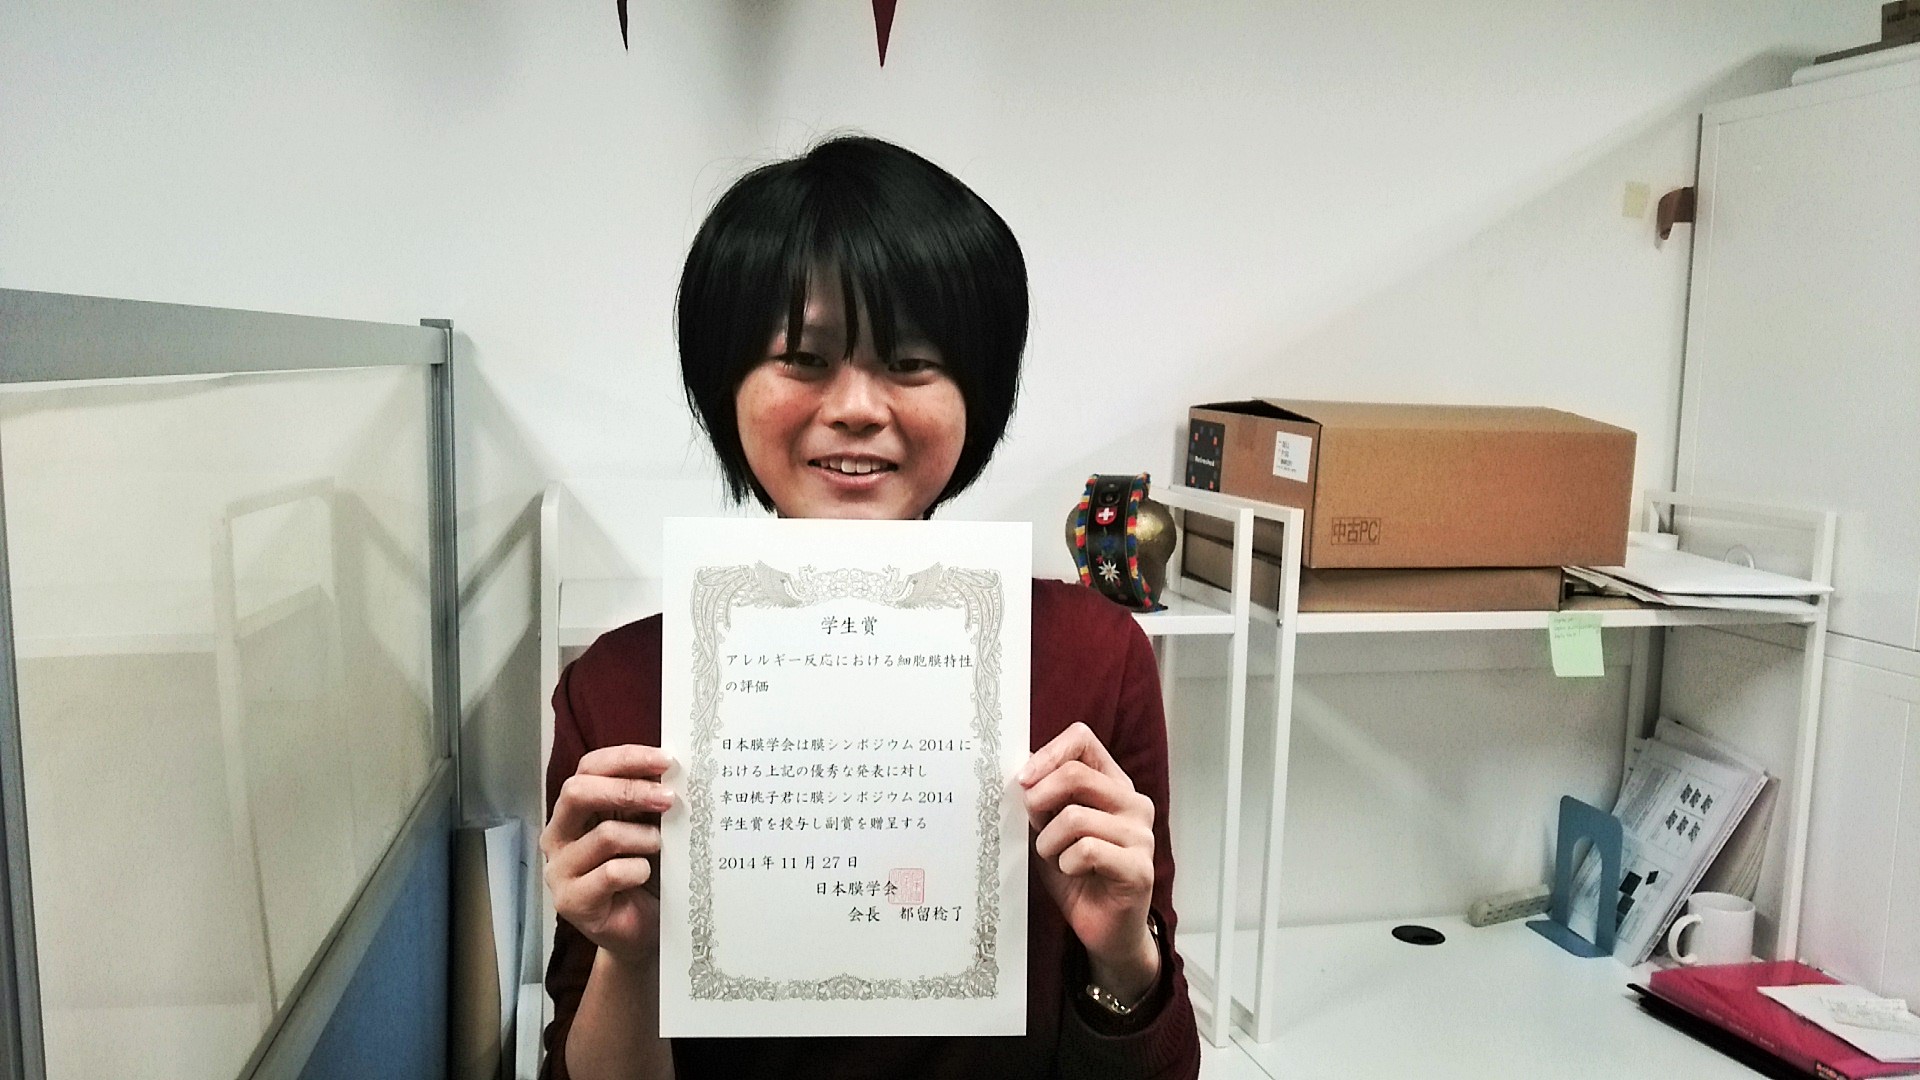 学生賞
アレルギー反応における細胞膜特性
の評価
日本膜学会は膜シンポジウム2014に
おける上記の優秀な発表に対し
幸田桃子君に膜シンポジウム2014
学生賞を授与し副賞を贈呈する
2014年11月27日
日本膜学会
会長 都留稔了
Refreshed
中古PC